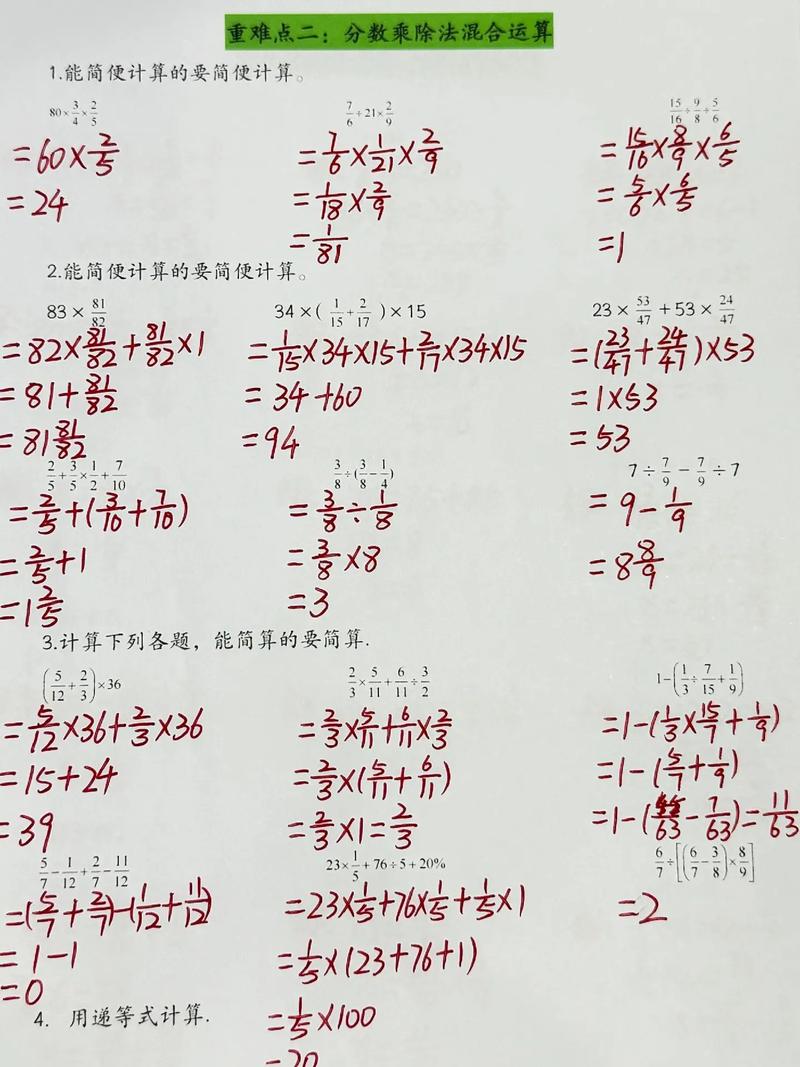 重难点二：分数乘除法混合运算
1.能简便计算的要简便计算。
80×3/4×2/5
=60×2/5
=24
7/6÷21×2/9
=7/6×1/21×2/9
=1/18×2/9
=1/81
15/16÷9/8÷5/6
=15/16×8/9×6/5
=5/6×6/5
=1
2.能简便计算的要简便计算。
83×81/82
=82×81/82+81/82×1
=81+81/82
=81 81/82
34×(1/15+2/17)×15
=1/15×34×15+2/17×34×15
=34+60
=94
23×53/47+53×24/47
=(23/47+24/47)×53
=1×53
=53
2/5+3/5×1/2+7/10
=2/5+(3/10+7/10)
=2/5+1
=1 2/5
3/8÷(3/8-1/4)
=3/8÷1/8
=3/8×8
=3
7÷7/9-7/9÷7
=9-1/9
=8 8/9
3.计算下列各题，能简算的要简算.
(5/12+2/3)×36
=5/12×36+2/3×36
=15+24
=39
2/3×5/11+6/11÷3/2
=2/3×5/11+6/11×2/3
=2/3×(5/11+6/11)
=2/3×1=2/3
1-(1/3÷7/15+1/9)
=1-(1/3×15/7+1/9)
=1-(5/7+1/9)
=1-(/63-7/63)=11/63
5/7-1/12+2/7-11/12
=(5/7+2/7)-(1/12+11/12)
=1-1
=0
23×1/5+76÷5+20%
=23×1/5+76×1/5+1/5×1
=1/5×(23+76+1)
=1/5×100
=20
6/7÷[(6/7-3/8)×8/9]
=2
4. 用递等式计算.